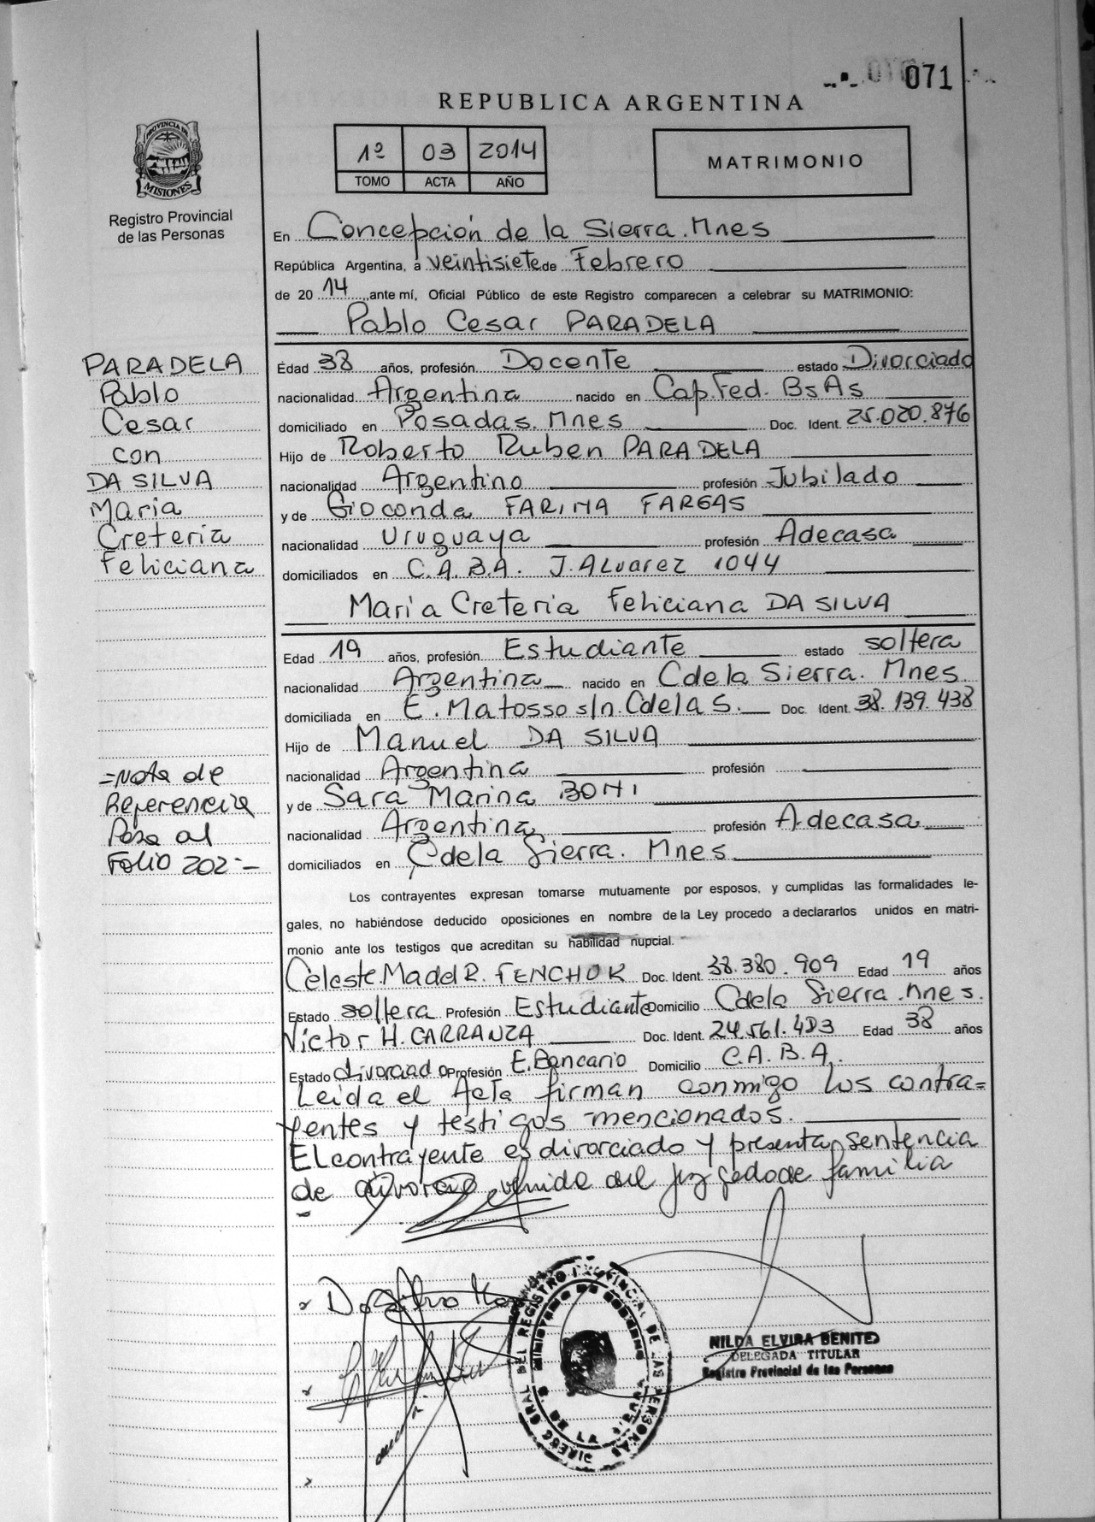 071
REPUBLICA ARGENTINA
PROVINCIA DE
MISIONES
Registro Provincial
de las Personas
1º 03 2014
TOMO ACTA AÑO
MATRIMONIO
En Concepción de la Sierra. Mnes
República Argentina, a veintisiete de Febrero
de 20 14 ante mí, Oficial Público de este Registro comparecen a celebrar su MATRIMONIO:
Pablo Cesar PARADELA
PARADELA
Pablo
Cesar
con
DA SILVA
Maria
Creteria
Feliciana
Edad 38 años, profesión Docente estado Divorciado
nacionalidad Argentina nacido en Cap.Fed. BsAs
domiciliado en Posadas. Mnes Doc. Ident. 25.020.876
Hijo de Roberto Ruben PARADELA
nacionalidad Argentino profesión Jubilado
y de Gioconda FARIÑA FARGAS
nacionalidad Uruguaya profesión Adecasa
domiciliados en C.A.B.A. J. Alvarez 1044
Maria Creteria Feliciana DA SILVA
Edad 19 años, profesión Estudiante estado soltera
nacionalidad Argentina nacido en Cdela Sierra. Mnes
domiciliada en E. Matosso s/n. CdelaS. Doc. Ident. 38.139.438
Hijo de Manuel DA SILVA
nacionalidad Argentina profesión
y de Sara Marina
nacionalidad Argentina profesión Adecasa
domiciliados en Cdela Sierra. Mnes
=Nota de
Referencia
Pasa al
Folio 202.-
Los contrayentes expresan tomarse mutuamente por esposos, y cumplidas las formalidades le-
gales, no habiéndose deducido oposiciones en nombre de la Ley procedo a declararlos unidos en matri-
monio ante los testigos que acreditan su habilidad nupcial.
Celeste M. del R. FENCHUK Doc. Ident. 38.380.909 Edad 19 años
Estado soltera Profesión Estudiante Domicilio Cdela Sierra. Mnes.
Victor H. CARRANZA Doc. Ident. 24.561.403 Edad 38 años
Estado divorciado Profesión E. Bancario Domicilio C.A.B.A.
Leida el Acta firman conmigo los contra=
yentes y testigos mencionados.
El contrayente es divorciado y presenta sentencia
de divorcio venida del juzgado de familia
NILDA ELVIRA BENITEZ
DELEGADA TITULAR
Registro Provincial de las Personas